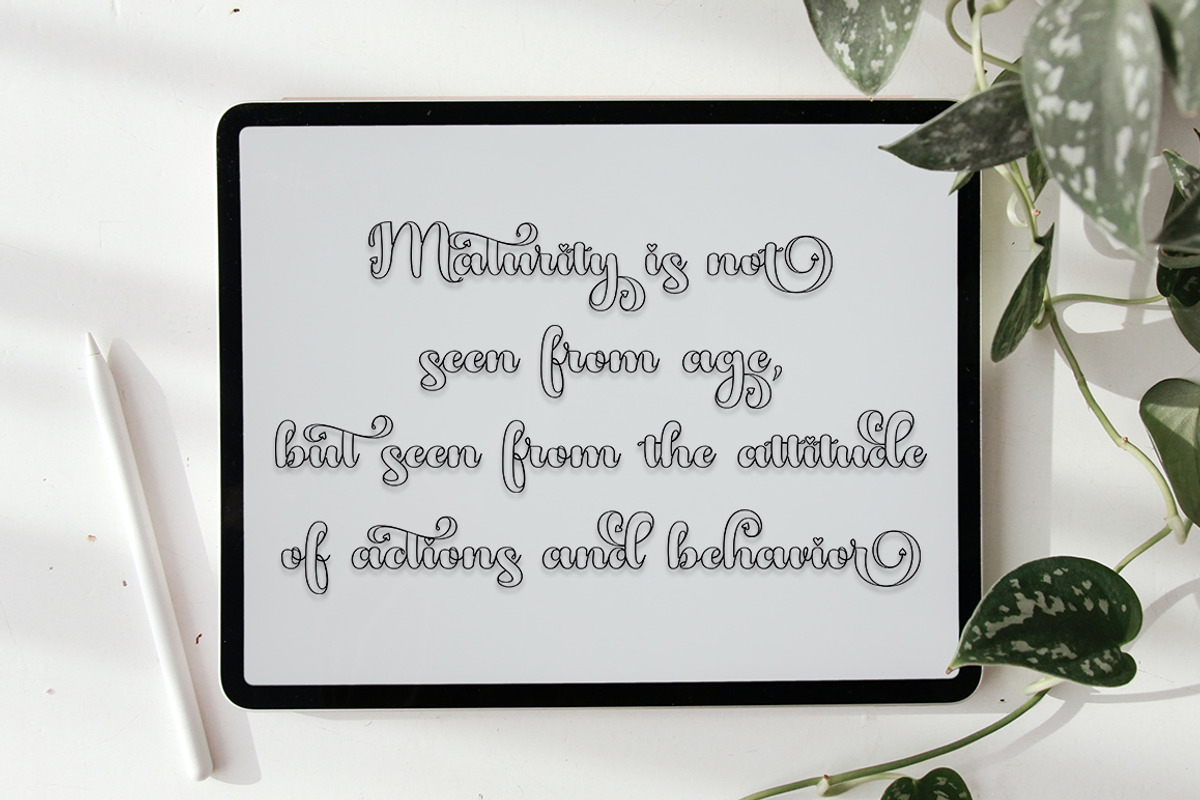 Maturity is not
seen from age,
but seen from the attitude
of actions and behavior